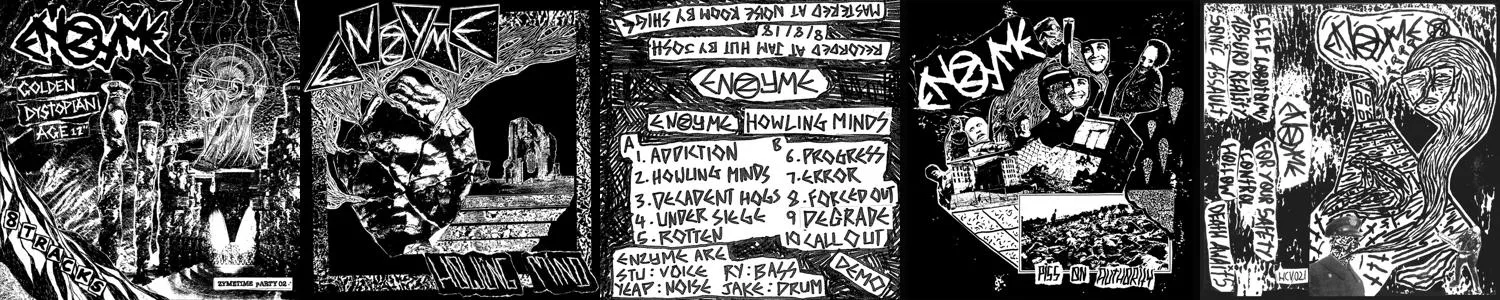 ENZYME
GOLDEN
DYSTOPIAN
AGE 12"
8 TRACKS
ZYMETIME PARTY 02
ENZYME
HOWLING MIND
MASTERED AT NOISE ROOM BY SHIGE
8/8/18
RECORDED AT JAM HUT BY JOSH
ENZYME
ENZYME HOWLING MINDS
A
1. ADDICTION
2. HOWLING MINDS
3. DECADENT HOGS
4. UNDER SIEGE
5. ROTTEN
B
6. PROGRESS
7. ERROR
8. FORCED OUT
9 DEGRADE
10 CALL OUT
ENZYME ARE
STU: VOICE RY: BASS
YEAP: NOISE JAKE: DRUM
DEMO
ENZYME
PISS ON AUTHORITY
ENZYME
SELF LOBOTOMY
ABSURD REALITY
SONIC ASSAULT
ENZYME
FOR YOUR SAFETY
CONTROL
HCV021